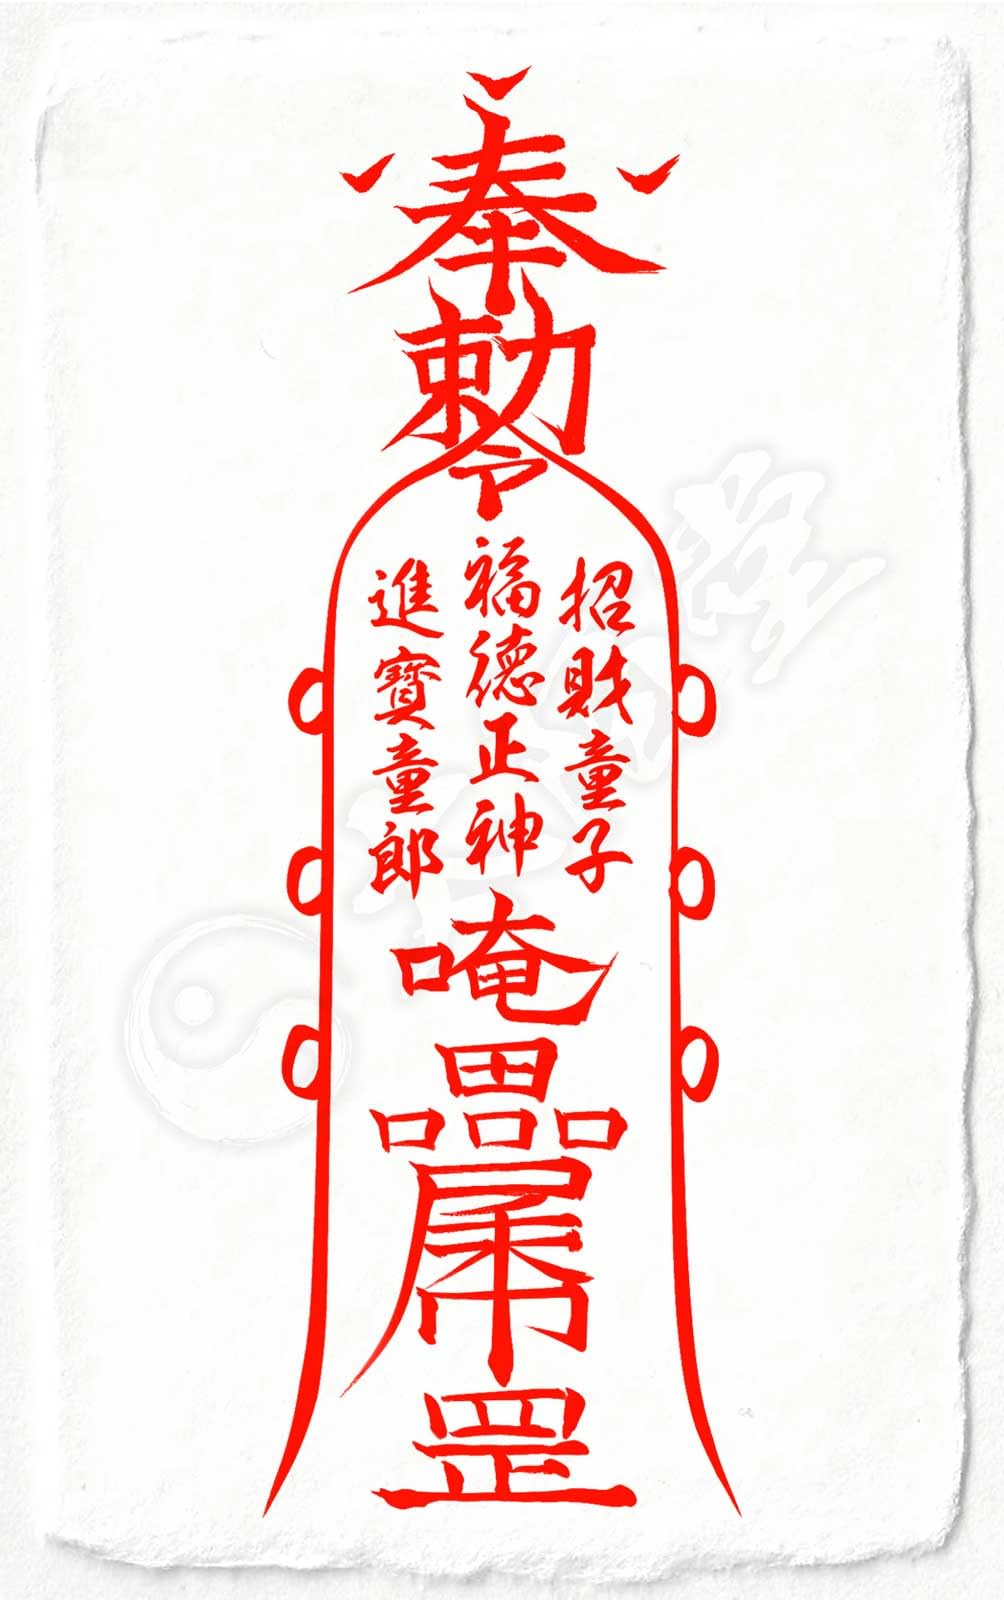 奉
勅
令
招財童子
福德正神
進寶童郎
唵
罡